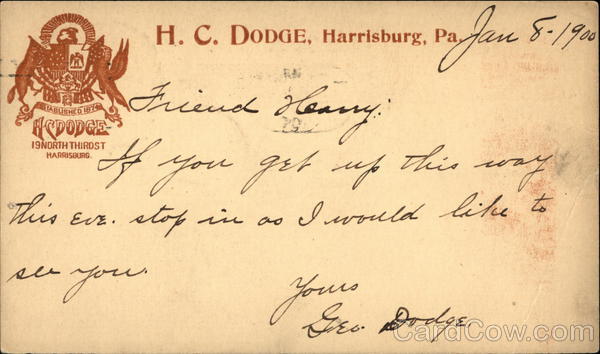 H. C. DODGE, Harrisburg, Pa. Jan 8-1900
ESTABLISHED 1874
H.C. DODGE
19 NORTH THIRD ST
HARRISBURG.
Friend Harry:
If you get up this way
this Eve. stop in as I would like to
see you.
Yours
Geo. Dodge.
CardCow.com